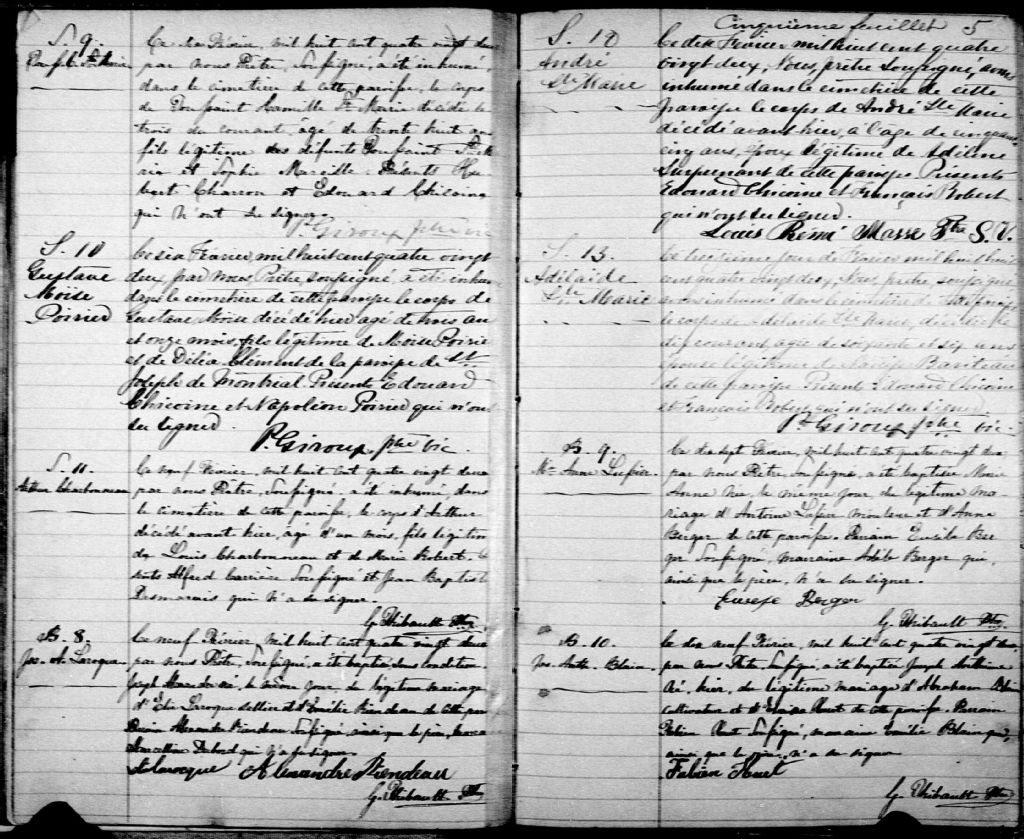 S. 9.
Ce six Février, mil huit cent quatre vingt deux
par nous Prêtre, Soussigné, a été inhumé,
dans le cimetière de cette paroisse, le corps
de Toussaint Camille Ste Marie décédé le
trois du courant, âgé de trente huit ans
fils légitime des défunts Toussaint Ste Ma
rie et Sophie Marcille. Présents Hu
bert Charron et Edouard Chicoine
qui n'ont su signer.
P. Giroux ptre vic
S. 10
Gustave
Moïse
Poirier
Ce six Fevrier, mil huit cent quatre vingt
deux par nous, Prêtre, soussigné, a été inhumé
dans le cimetière de cette paroisse le corps de
Gustave Moïse décédé hier agé de trois ans
et onze mois, fils légitime de Moïse Poirier
et de Délia Clément de la paroisse de St
Joseph de Montréal Présents Edouard
Chicoine et Napoléon Poirier qui n'ont
su signer.
P. Giroux ptre vic.
S. 11.
Arthur Charbonneau
Ce neuf Février, mil huit cent quatre vingt deux
par nous Prêtre, Soussigné, a été inhumé, dans
le cimetière de cette paroisse, le corps d'Arthur
décédé avant hier, âgé d'un mois, fils légitime
de Louis Charbonneau et de Marie Robert.
Alfred Carrière Soussigné et Jean Baptiste
Desmarais qui n'a su signer.
G. Thibault Ptre
B. 8.
Jos. A. Larocque
Ce neuf Février, mil huit cent quatre vingt deux
par nous Prêtre, Soussigné, a été baptisé sous condition
Joseph né, le même jour, du légitime mariage
d'Elie Larocque sellier et d'Emilie Riendeau de cette par
Parrain Alexandre Riendeau Soussigné, ainsi que le père, marraine
Marcelline Dubord qui n'a su signer.
E Larocque Alexandre Riendeau
G. Thibault Ptre
Cinquième feuillet 5
S. 12
André
Ste Marie
Ce dix Fevrier mil huit cent quatre
vingt deux, Nous, prêtre soussigné, avons
inhumé dans le cimetière de cette
paroisse le corps de André Ste Marie
décédé avant hier, à l'age de cinquante
cinq ans, époux légitime de Adiline
Surprenant de cette paroisse Présents
Edouard Chicoine et François Robert
qui n'ont su signer.
Louis Rémi Masse Ptre S. V.
S. 13.
Adélaïde
Ste Marie
Ce treizième jour de Février mil huit
cent quatre vingt deux, Nous, prêtre, soussigné
avons inhumé dans le cimetière de cette paroisse
le corps de Adelaide Ste Marie, décédée le
dix courant agée de soixante et six ans
épouse légitime de Narcisse Bariteau
de cette paroisse Présents Edouard Chicoine
et Francois Robert qui n'ont su signer.
P. Giroux ptre vic.
B. 9.
Mie Anne Lapier
Ce dix sept Février, mil huit cent quatre vingt deux
par nous Prêtre Soussigné, a été baptisée Marie
Anne née, le même jour du légitime ma
riage d'Antoine Lapier mouleur et d'Anne
Berger de cette paroisse. Parrain Eusèbe Ber
ger Soussigné, marraine Berger qui,
ainsi que le père, n'a su signer.
Eusèbe Berger
G. Thibault Ptre
B. 10.
Jos. Anth. Blain
Ce dix neuf Février, mil huit cent quatre vingt deux,
par nous Prêtre Soussigné, a été baptisé Joseph Anthime
né, hier, du légitime mariage d'Abraham Blain
cultivateur et d' Huet de cette paroisse. Parrain
Fabien Huet Soussigné, marraine Emilie Blain qui,
ainsi que le père, n'a su signer
Fabien Huet
G. Thibault Ptre